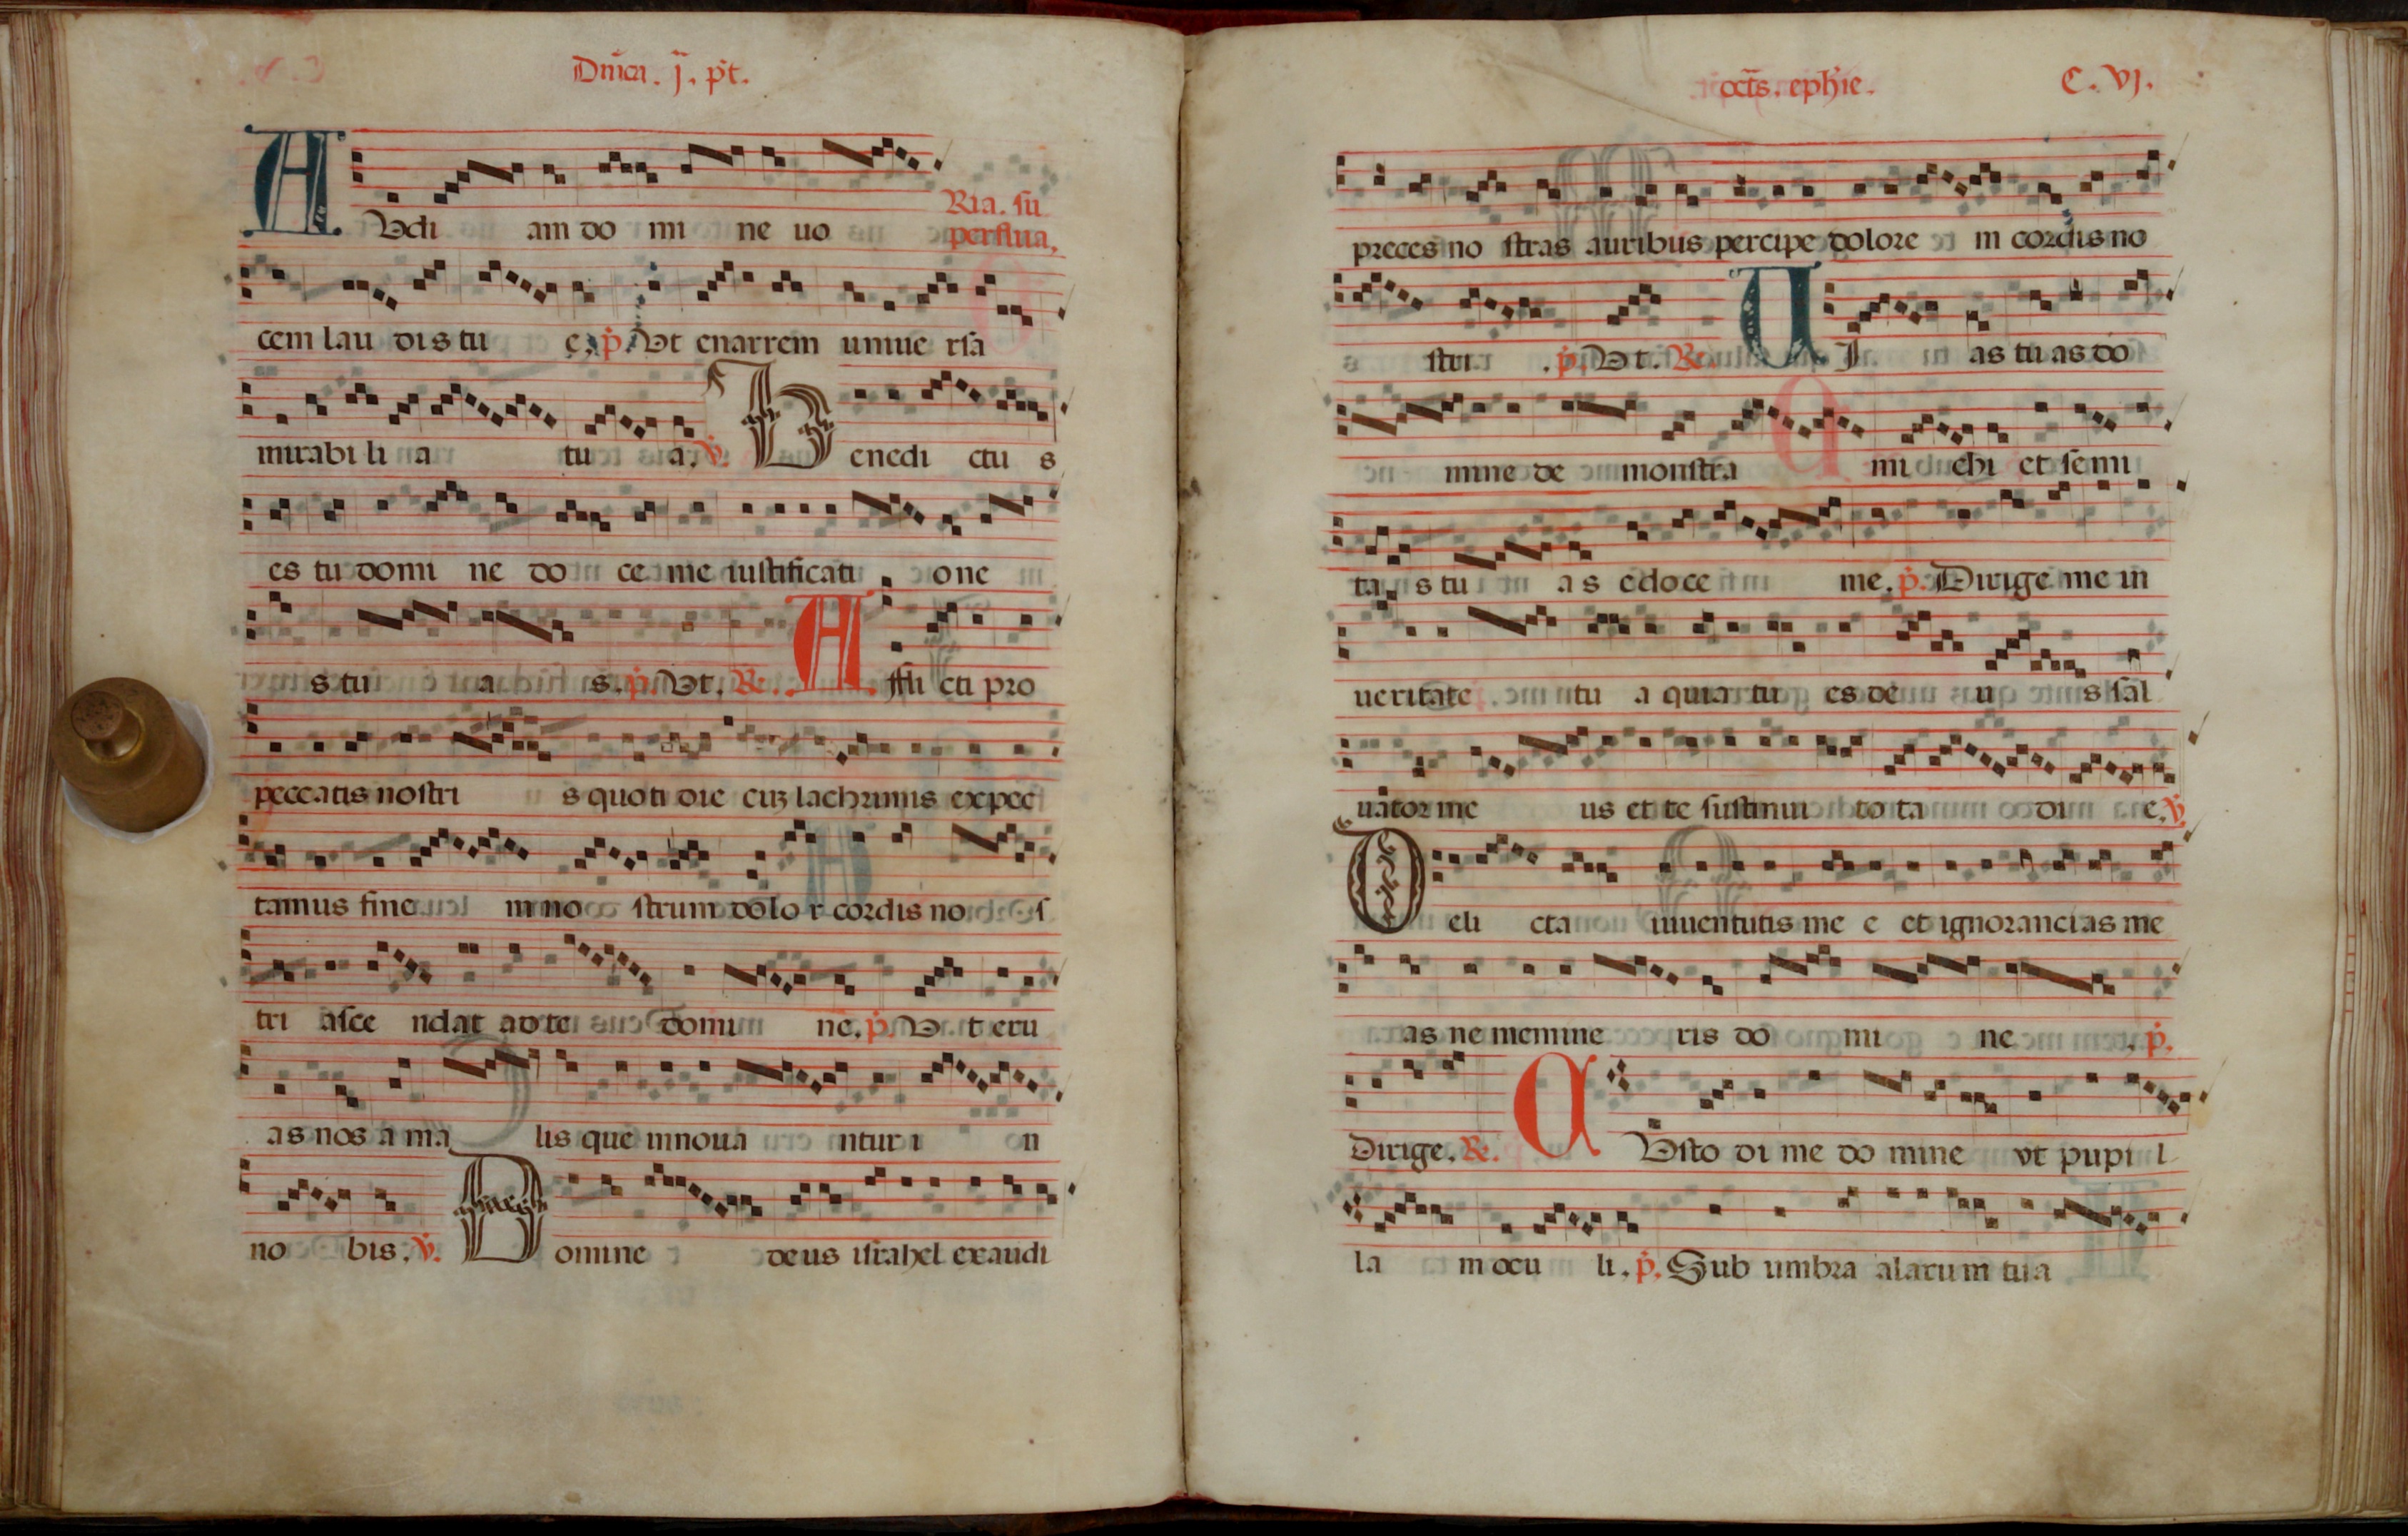 Dnica. j. pt.
A Vdi am do mi ne uo
Ria. su
perflua,
cem lau dis tu e, p. Vt enarrem uniue rsa
mirabi li a tu a. v. B enedi ctu s
es tu domi ne do ce me iustificati one
s tu a s. p. Vt. R. A ffli cti pro
peccatis nostri s quoti die cuz lachrimis expec
tamus fine m no strum dolo r cordis no s
tri asce ndat ad te domi ne. p. V t eru
as nos a ma lis que innoua ntur i n
no bis. v. D omine deus israhel exaudi
octs. ephie. C. VJ.
preces no stras auribus percipe dolore m cordis no
stri . p. Vt. R. V J as tuas do
mine de monstra mi chi et semi
ta s tu a s edoce me. p. Dirige me in
ueritate tu a quia tu es de u s sal
uator me us et te sustinui to ta di e. v.
D eli cta iuuentutis me e et ignoranci as me
as ne memine ris do mi ne . p.
Dirige. R. C Vsto di me do mine vt pupi l
la m ocu li. p. Sub umbra alarum tua